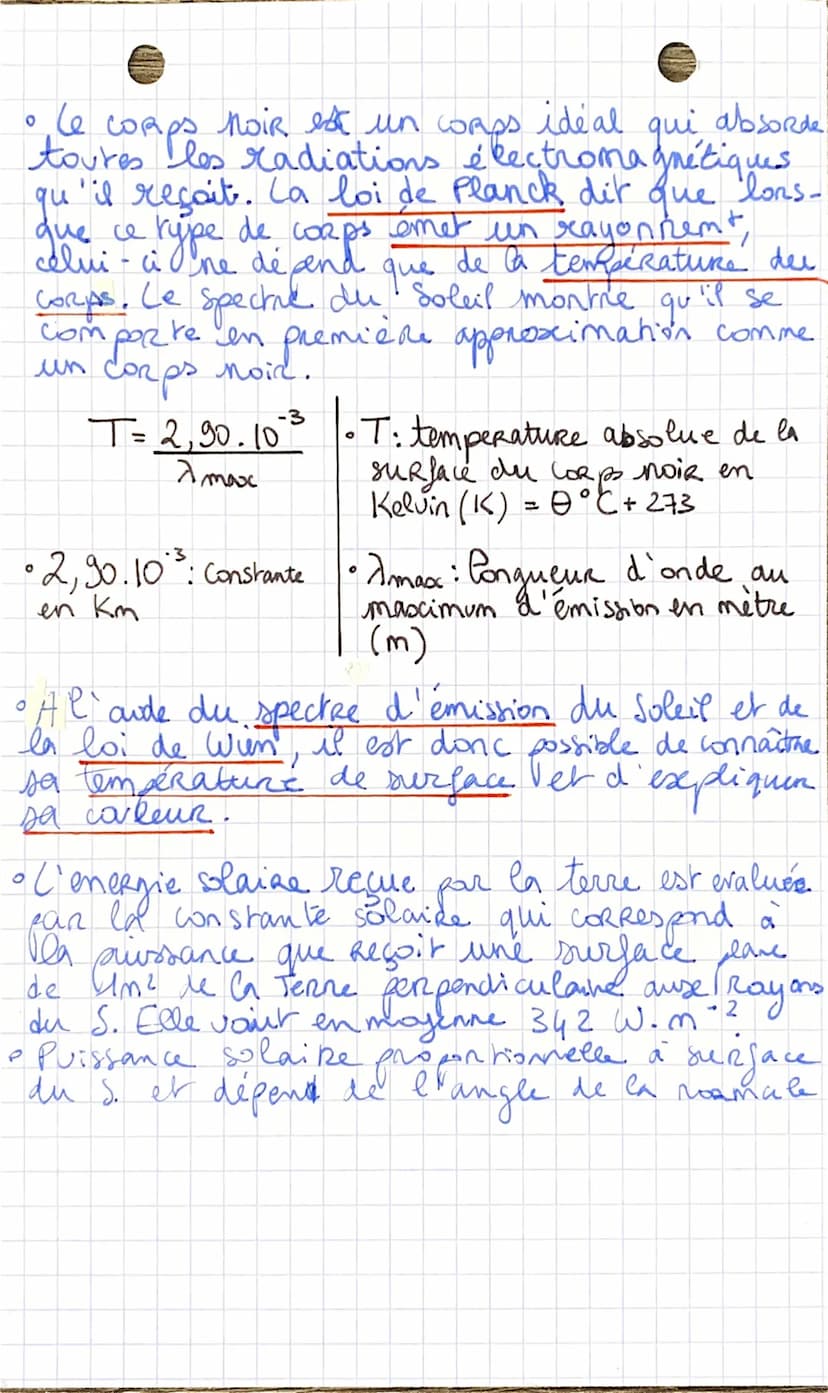 ° Le corps noir est un corps idéal qui absorde
toutes les radiations électromagnétiques
qu'il reçoit. La loi de Planck dit que lors-
que ce type de corps émet un rayonnemt,
celui-ci ne dépend que de la température du
corps. Le spectre du Soleil montre qu'il se
comporte en première approximation comme
un corps noir.
T = 2,90.10⁻³ / λmax
• T: temperature absolue de la
surface du corps noir en
Kelvin (K) = θ°C + 273
• 2,90.10⁻³: Constante
en Km
• λmax: longueur d'onde au
maximum d'émission en mètre
(m)
° A l'aide du spectre d'émission du Soleil et de
la loi de Wien, il est donc possible de connaître
sa température de surface et d'expliquer
sa couleur.
° L'energie solaire reçue par la terre est evaluée
par la constante solaire qui correspond à
la puissance que reçoit une surface plane
de 1m² de la Terre perpendiculaire aux rayons
du S. Elle vaut en moyenne 342 W.m⁻²
° Puissance solaire proportionnelle à surface
du S. et dépend de l'angle de la normale